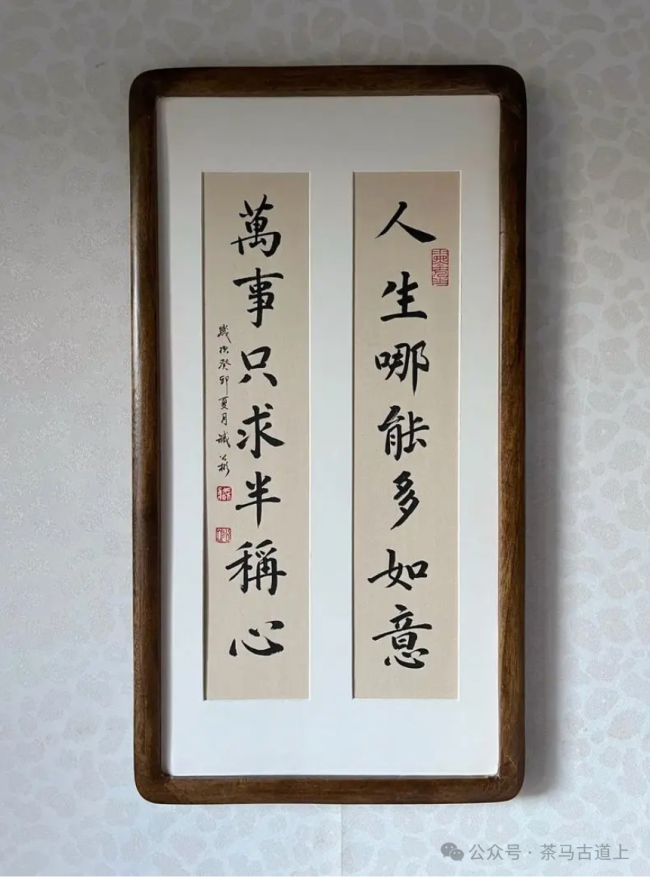 人生哪能多如意
萬事只求半稱心
歲次癸卯夏月
公众号·茶马古道上